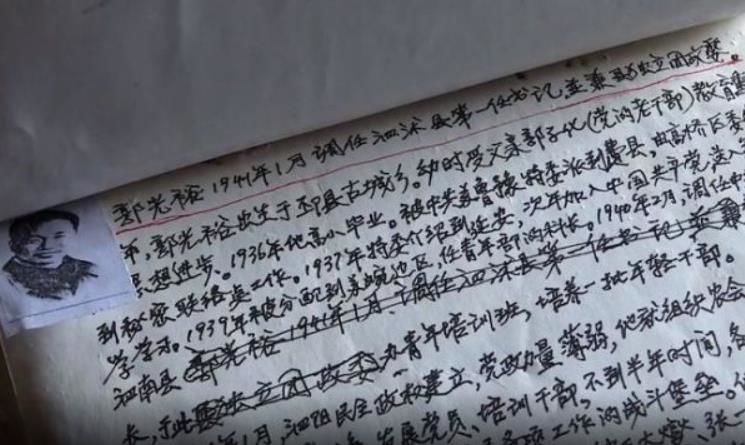 郭光裕1941年1月调任泗沭县第一任书记,并兼独立团政委。
年,郭光裕出生于邳县古城乡。幼时受父亲郭子化(党的老干部)教育
思想进步。1936年他高小毕业。被中共苏鲁豫特委派到费县,曲高桥区委
到秘密联络点工作。1937年特委介绍到延安,次年加入中国共产党送入
学学习。1939年被分配到苏皖地区任青年部的科长。1940年2月,调任中
泗南县郭光裕1941年1月,调任泗沭县第一任书记并兼
长,于此独立团政委办青年培训班,培养一批年轻干部。
年1月,泗阳民主政权建立,党政力量薄弱,他就组织农会
发展党员、培训干部。不到半年时间,各
工作的战斗堡垒。
张一